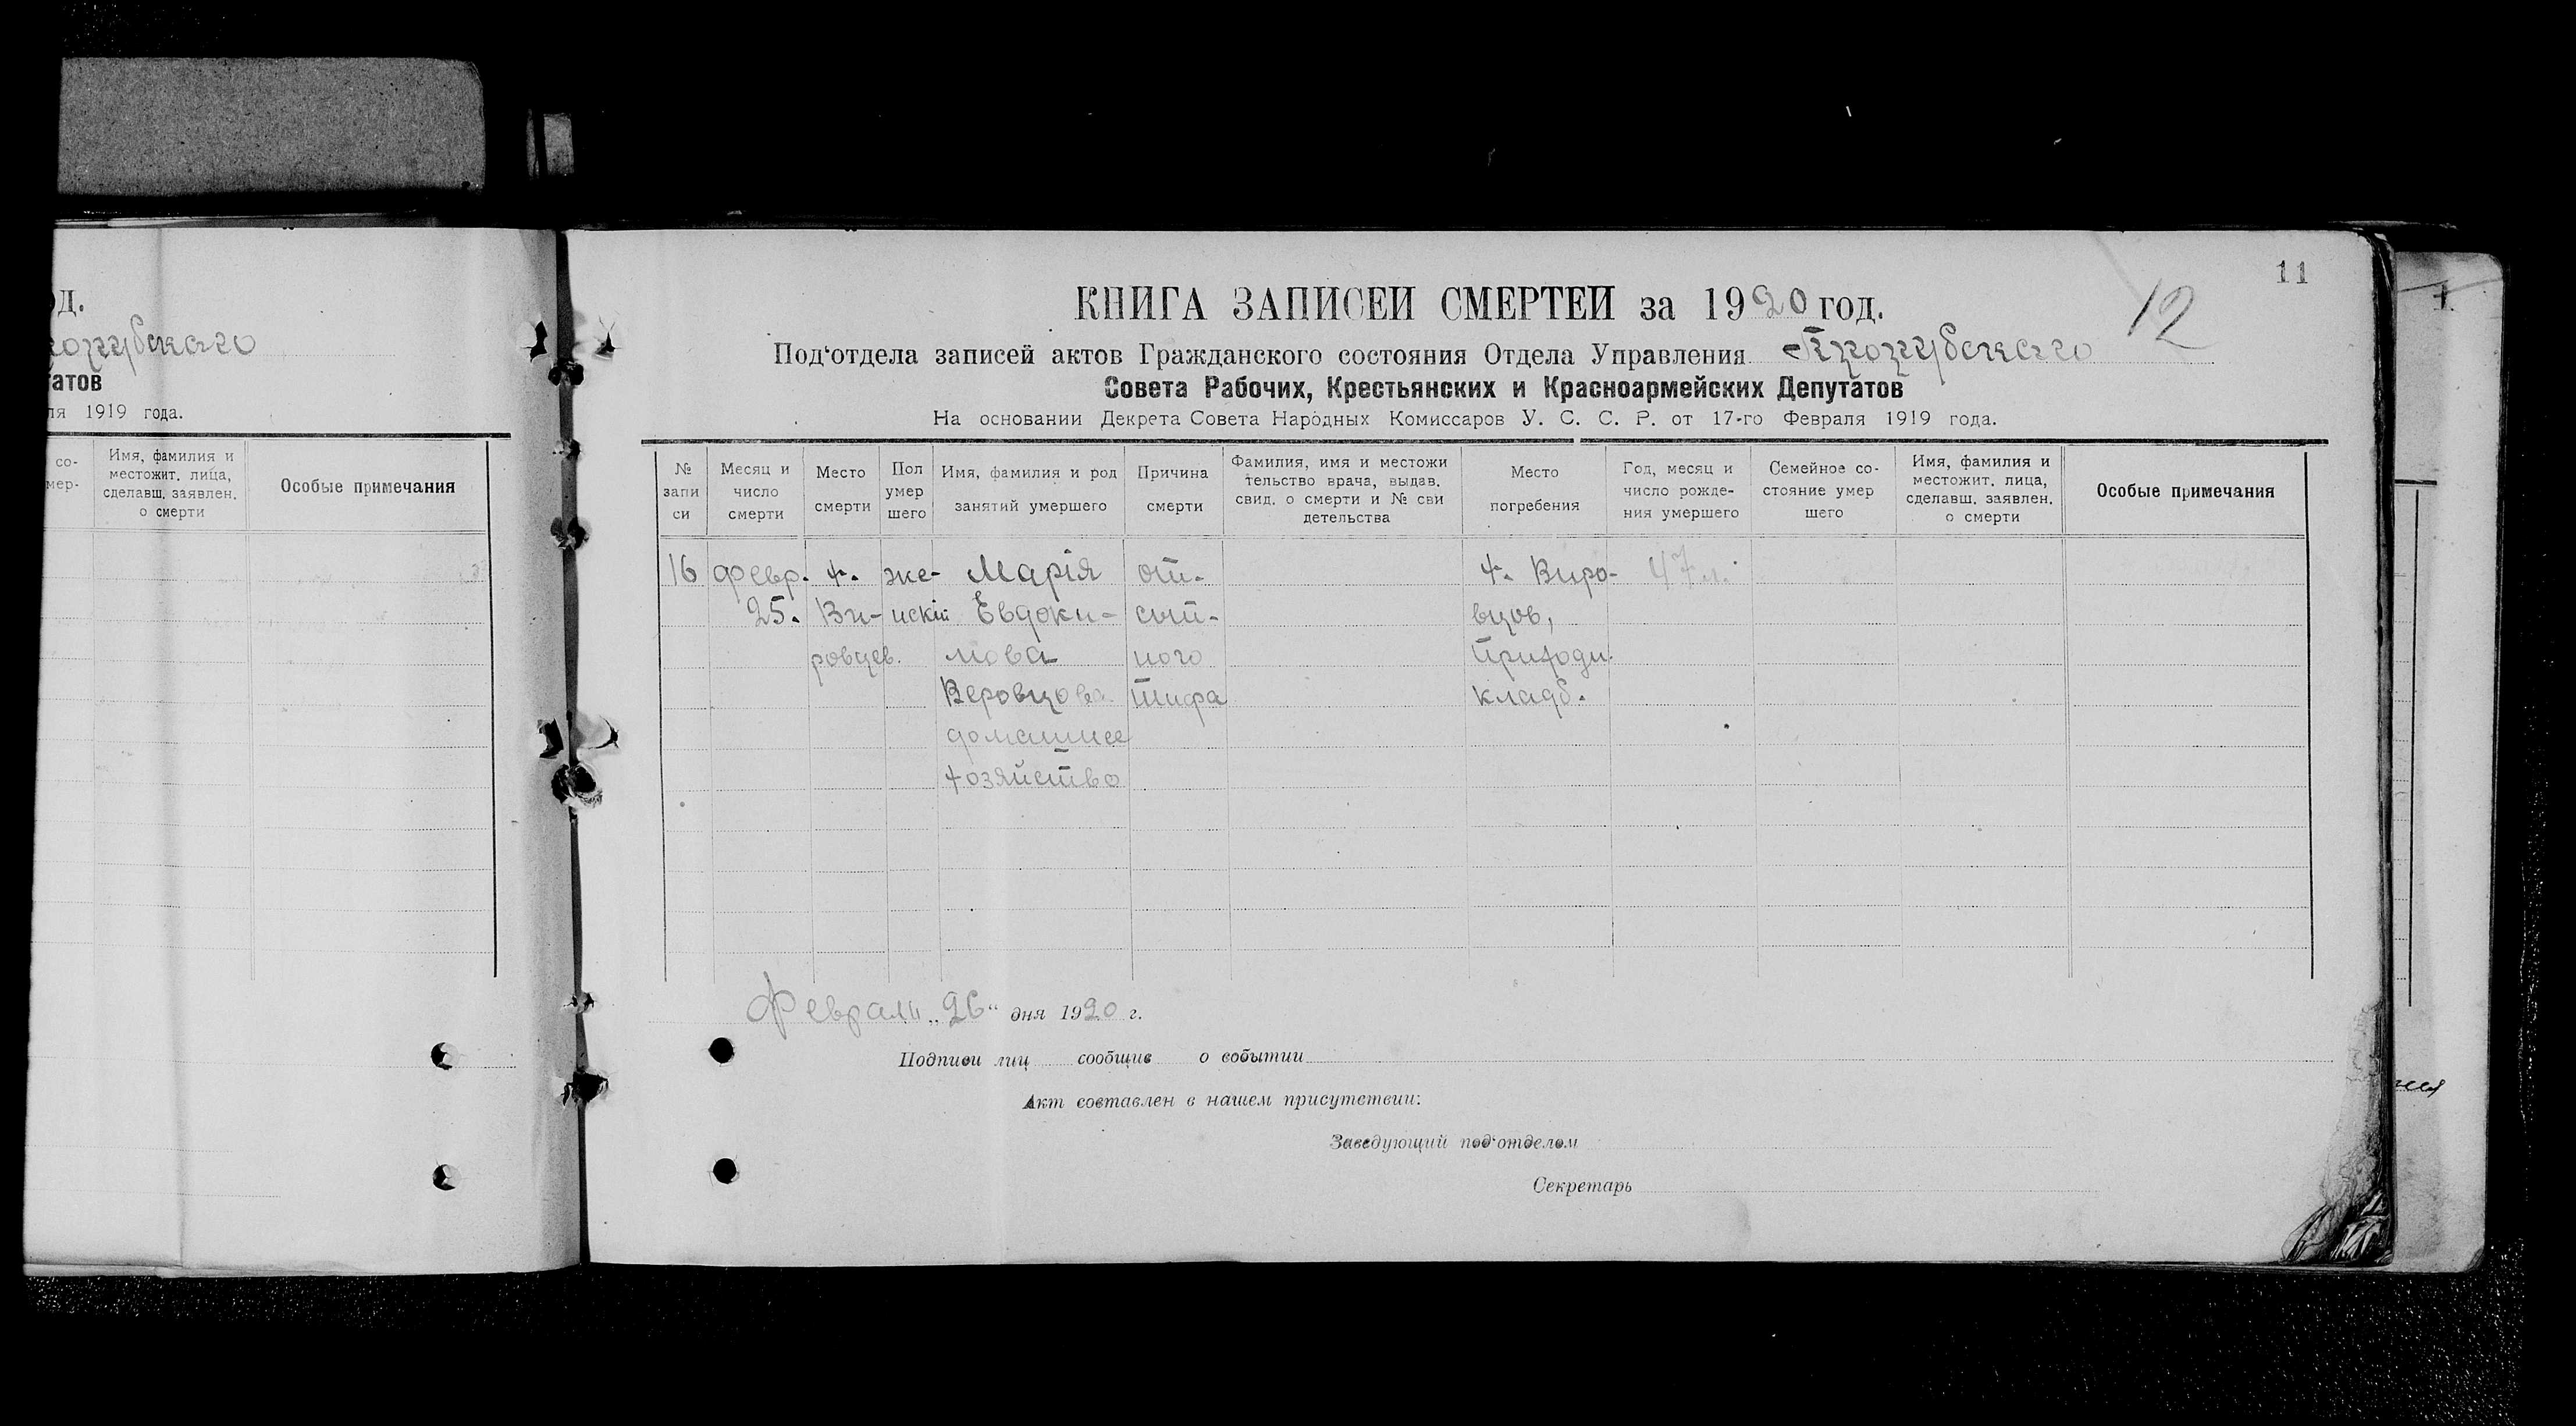 од.
атов
ля 1919 года.
со-
мер-
Имя, фамилия и
местожит. лица,
сделавш. заявлен.
о смерти
Особые примечания
11
12
КНИГА ЗАПИСЕЙ СМЕРТЕЙ за 1920 год.
Под'отдела записей актов Гражданского состояния Отдела Управления
Совета Рабочих, Крестьянских и Красноармейских Депутатов
На основании Декрета Совета Народных Комиссаров У. С. С. Р. от 17-го Февраля 1919 года.
№
запи
си
Месяц и
число
смерти
Место
смерти
Пол
умер
шего
Имя, фамилия и род
занятий умершего
Причина
смерти
Фамилия, имя и местожи
тельство врача, выдав.
свид. о смерти и № сви
детельства
Место
погребения
Год, месяц и
число рожде-
ния умершего
Семейное со-
стояние умер
шего
Имя, фамилия и
местожит. лица,
сделавш. заявлен.
о смерти
Особые примечания
16
февр.
25.
х.
Ви-
ровцев.
же-
нскій
Марія
Евдоки-
мова
Веровцова
домашнее
хозяйство
от-
сып-
ного
тифа
х. Виро-
вцов,
Приходи.
кладб.
47 л.
Февраля „26“ дня 1920 г.
Подписи лиц сообщив о событии
Акт составлен в нашем присутствии:
Заведующий под'отделом
Секретарь